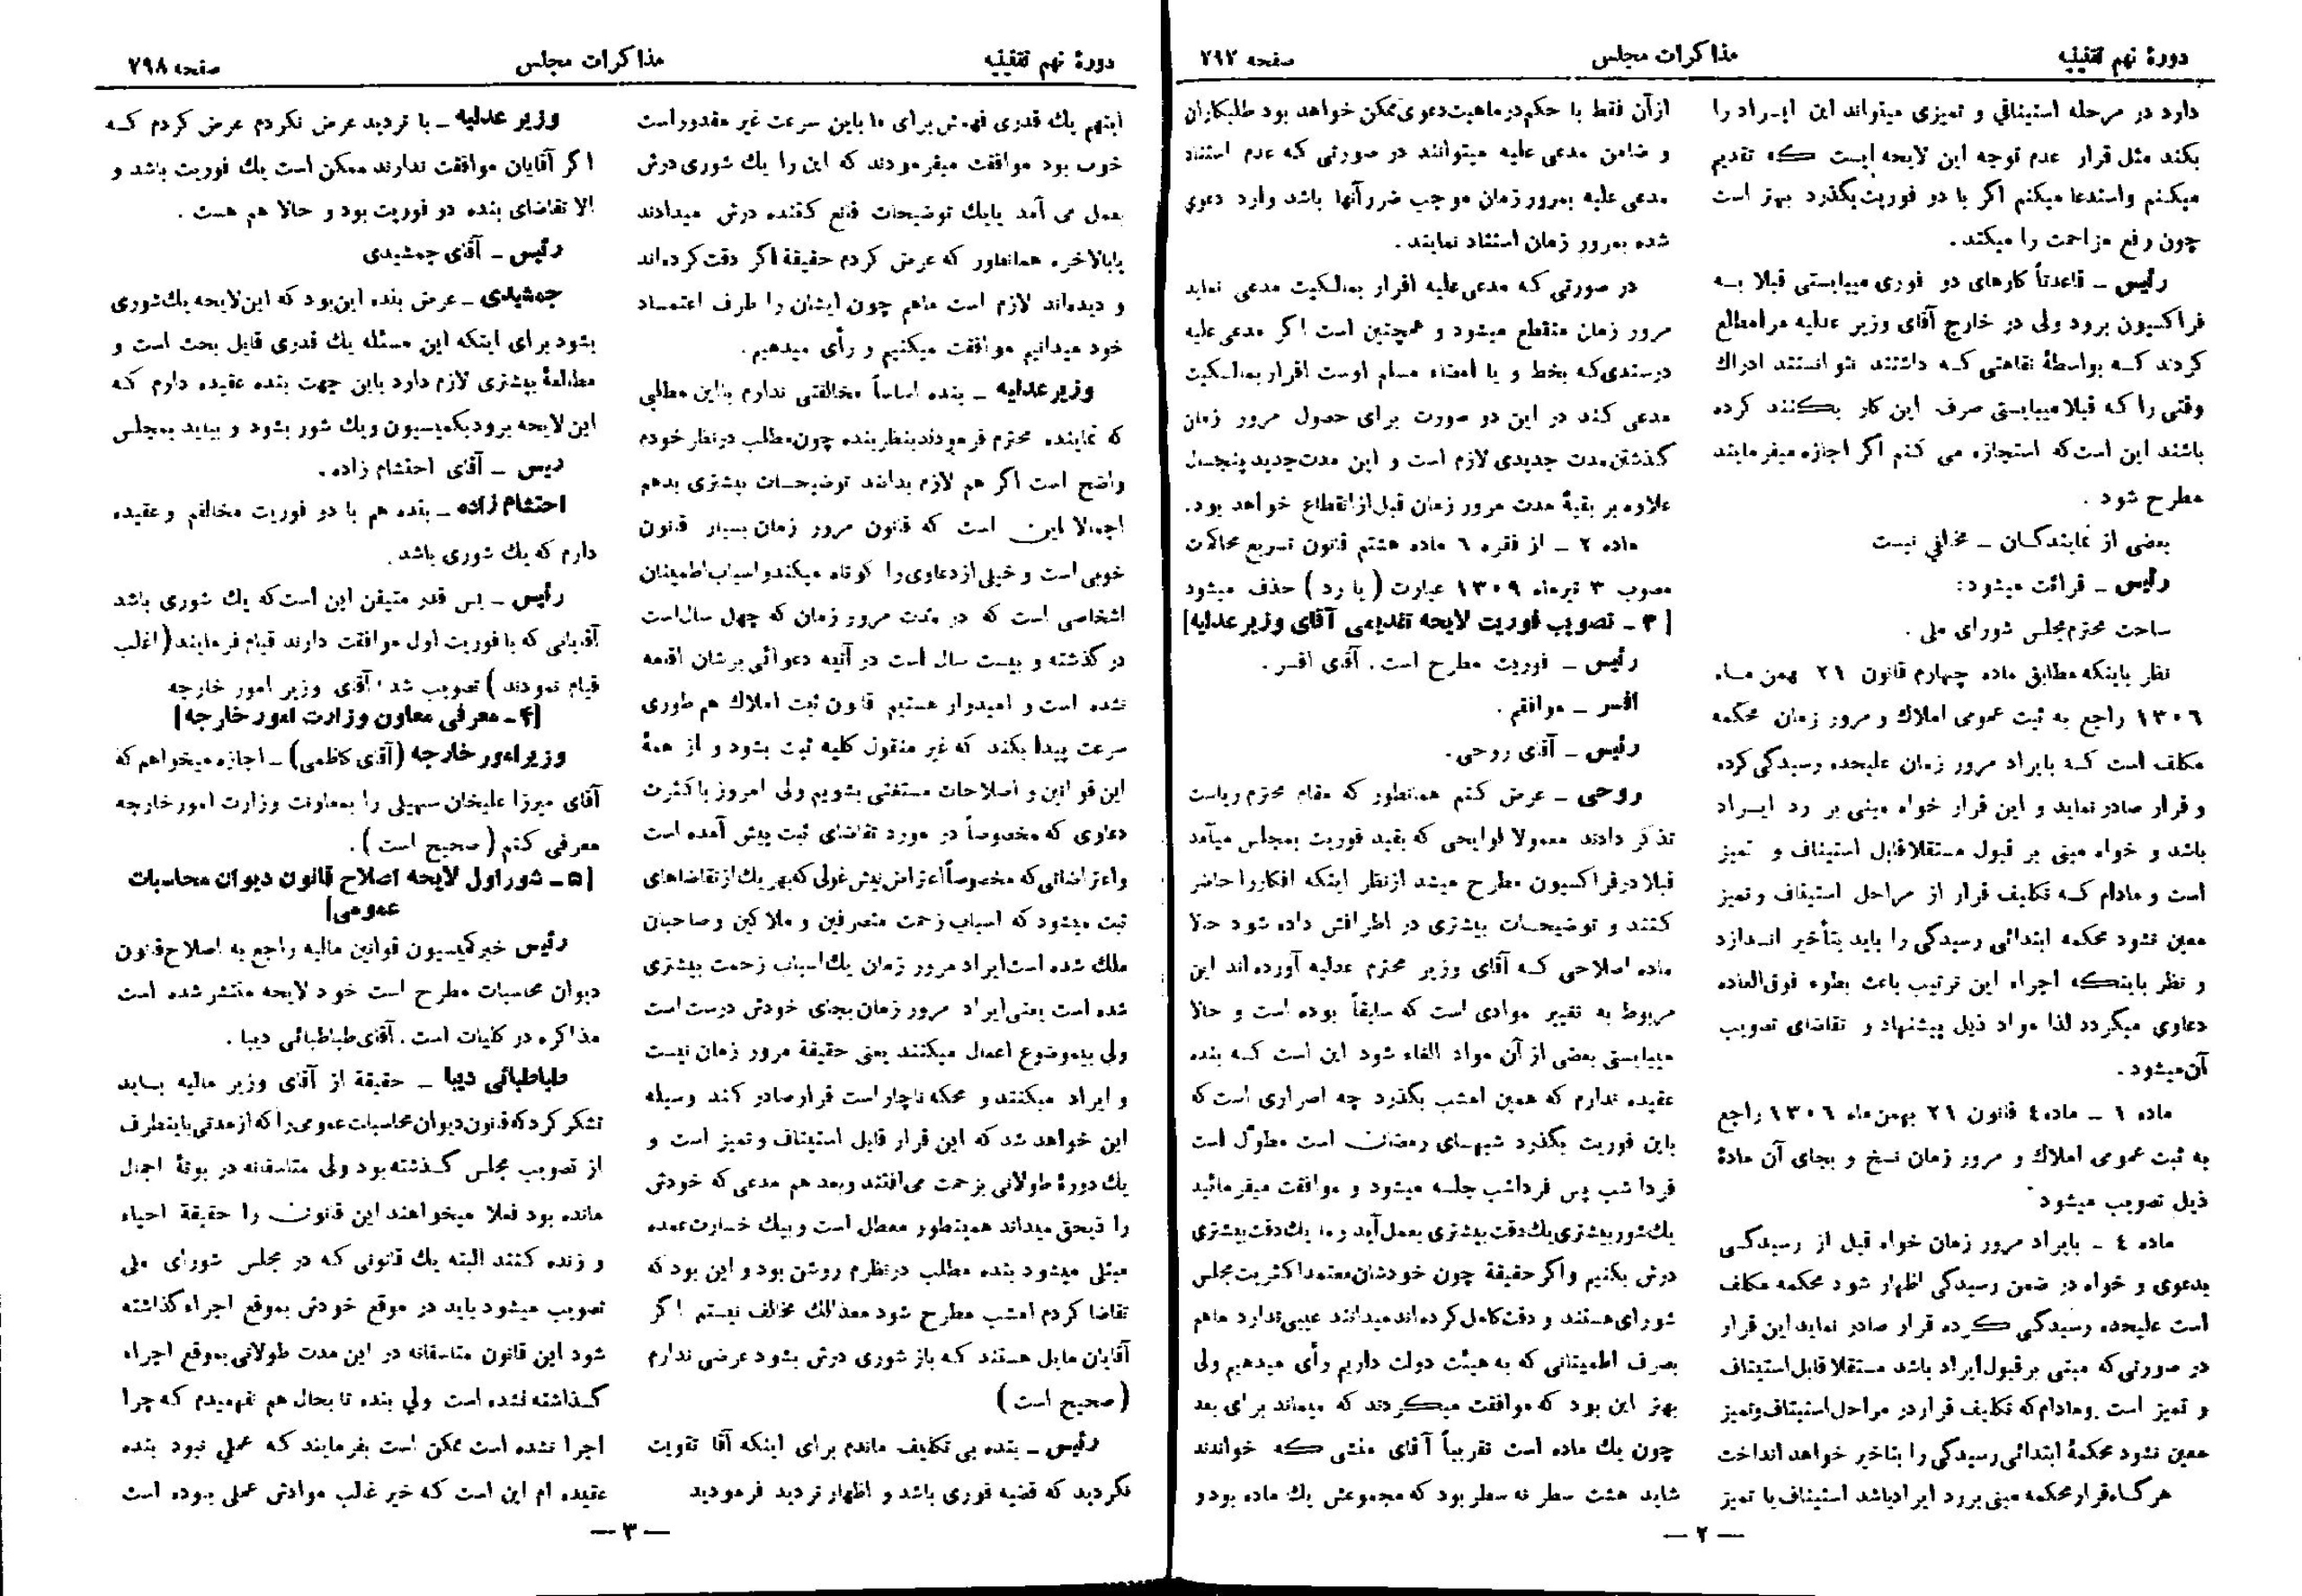 دورهٔ نهم تقنینیه
مذاکرات مجلس
صفحه ۷۹۷
دارد در مرحله استینافی و تمیزی میتواند این ایـراد را
بکند مثل قرار عدم توجه این لایحه ایست که تقدیم
میکنم واستدعا میکنم اگر با دو فوریت بگذرد بهتر است
چون رفع مزاحمت را میکند.
رئیس ـ قاعدتاً کارهای دو فوری میبایستی قبلا بـه
فراکسیون برود ولی در خارج آقای وزیر عدلیه مرا مطلع
کردند کـه بواسطهٔ نقاهتی کـه داشتند نتوانستند ادراك
وقتی را که قبلا میبایستی صرف این کار بکنند کرده
باشند این است که استجازه می کنم اگر اجازه میفرمایند
مطرح شود .
بعضی از نمایندگـان ـ مخالفی نیست
رئیس ـ قرائت میشود:
ساحت محترم مجلس شورای ملی .
نظر باینکه مطابق ماده چهارم قانون ۲۱ بهمن مـاه
۱۳۰۶ راجع به ثبت عمومی املاك و مرور زمان محکمه
مکلف است کـه بایراد مرور زمان علیحده رسیدگی کرده
و قرار صادر نماید و این قرار خواه مبنی بر رد ایـراد
باشد و خواه مبنی بر قبول مستقلا قابل استیناف و تمیز
است و مادام کـه تکلیف قرار از مراحل استیناف و تمیز
معین نشود محکمه ابتدائی رسیدگی را باید بتأخیر انـدازد
و نظر باینکه اجراء این ترتیب باعث بطوء فوق العاده
دعاوی میگردد لذا مواد ذیل پیشنهاد و تقاضای تصویب
آن میشود .
ماده ۱ ـ ماده ٤ قانون ۲۱ بهمن ماه ۱۳۰۶ راجع
به ثبت عمومی املاك و مرور زمان نسخ و بجای آن مادهٔ
ذیل تصویب میشود
ماده ٤ ـ بایراد مرور زمان خواه قبل از رسیدگـی
بدعوی و خواه در ضمن رسیدگی اظهار شود محکمه مکلف
است علیحده رسیدگی کرده قرار صادر نماید این قرار
در صورتی که مبنی بر قبول ایراد باشد مستقلا قابل استیناف
و تمیز است و مادام که تکلیف قرار در مراحل استیناف و تمیز
معین نشود محکمهٔ ابتدائی رسیدگی را بتاخیر خواهد انداخت
هرگـاه قرار محکمه مبنی بر رد ایراد باشد استیناف یا تمیز
از آن فقط با حکم در ماهیت دعوی ممکن خواهد بود طلبکاران
و ضامن مدعی علیه میتوانند در صورتی که عدم استناد
مدعی علیه بمرور زمان موجب ضرر آنها باشد وارد دعوی
شده بمرور زمان استناد نمایند .
در صورتی که مدعی علیه اقرار بمالکیت مدعی نماید
مرور زمان منقطع میشود و همچنین است اگر مدعی علیه
در سندی که بخط و یا امضاء مسلم اوست اقرار بمالکیت
مدعی کند در این دو صورت برای حصول مرور زمان
گذشتن مدت جدیدی لازم است و این مدت جدید پنجسال
علاوه بر بقیهٔ مدت مرور زمان قبل از انقطاع خواهد بود.
ماده ۲ ـ از فقره ۶ ماده هشتم قانون تسریع محاکمات
مصوب ۳ تیرماه ۱۳۰۹ عبارت ( یا رد ) حذف میشود
[ ۳ ـ تصویب فوریت لایحه تقدیمی آقای وزیر عدلیه]
رئیس ـ فوریت مطرح است . آقای افسر .
افسر ـ موافقم .
رئیس ـ آقای روحی.
روحی ـ عرض کنم همانطور که مقام محترم ریاست
تذکر دادند معمولا لوایحی که بقید فوریت بمجلس میآمد
قبلا در فراکسیون مطرح میشد از نظر اینکه افکار را حاضر
کنند و توضیحـات بیشتری در اطرافش داده شود حالا
ماده اصلاحی کـه آقای وزیر محترم عدلیه آورده اند این
مربوط به تغییر موادی است که سابقاً بوده است و حالا
میبایستی بعضی از آن مواد الغاء شود این است کـه بنده
عقیده ندارم که همین امشب بگذرد چه اصراری است که
باین فوریت بگذرد شبهـای رمضان است مطوّل است
فردا شب پس فرداشب جلسه میشود و موافقت میفرمائید
یك شور بیشتری یك دقت بیشتری بعمل آید و ما یك دقت بیشتری
درش بکنیم و اگر حقیقة چون خودشان معتمد اکثریت مجلس
شورای هستند و دقت کامل کرده اند میدانند عیبی ندارد ماهم
بصرف اطمینانی که به هیئت دولت داریم رأی میدهیم ولی
بهتر این بود که موافقت میکردند که میماند برای بعد
چون یك ماده است تقریباً آقای منشی که خواندند
شاید هشت سطر نه سطر بود که مجموعش یك ماده بود و
— ۲ —
دورهٔ نهم تقنینیه
مذاکرات مجلس
صفحه ۷۹۸
اینهم یك قدری فهمش برای ما باین سرعت غیر مقدور است
خوب بود موافقت میفرمودند که این را یك شوری درش
بعمل می آمد یا یك توضیحات قانع کننده درش میدادند
یا بالاخره همانطور که عرض کردم حقیقة اگر دقت کرده اند
و دیده اند لازم است ماهم چون ایشان را طرف اعتمـاد
خود میدانیم موافقت میکنیم و رأی میدهیم .
وزیر عدلیه ـ بنده اساساً مخالفتی ندارم باین مطلبی
که نماینده محترم فرمودند بنظر بنده چون مطلب در نظر خودم
واضح است اگر هم لازم بدانند توضیحـات بیشتری بدهم
اجمالا این است که قانون مرور زمان بسیار قانون
خوبی است و خیلی از دعاوی را کوتاه میکند و اسباب اطمینان
اشخاصی است که در مدت مرور زمان که چهل سال است
در گذشته و بیست سال است در آتیه دعوائی برشان اقامه
نشده است و امیدوار هستیم قانون ثبت املاك هم طوری
سرعت پیدا بکند که غیر منقول کلیه ثبت بشود و از همهٔ
این قوانین و اصلاحات مستغنی بشویم ولی امروز با کثرت
دعاوی که مخصوصاً در مورد تقاضای ثبت پیش آمده است
و اعتراضاتی که مخصوصاً اعتراض نیش غولی که بهر یك از تقاضاهای
ثبت میشود که اسباب زحمت متصرفین و ملاکین و صاحبان
ملك شده است ایراد مرور زمان یك اسباب زحمت بیشتری
شده است یعنی ایراد مرور زمان بجای خودش درست است
ولی بیموضوع اعمال میکنند یعنی حقیقة مرور زمان نیست
و ایراد میکنند و محکمه ناچار است قرار صادر کند وسیله
این خواهد شد که این قرار قابل استیناف و تمیز است و
یك دورهٔ طولانی بزحمت می افتند و بعد هم مدعی که خودش
را ذیحق میداند همینطور معطل است و بیك خسارت عمده
مبتلی میشود بنده مطلب در نظرم روشن بود و این بود که
تقاضا کردم امشب مطرح شود معذالك مخالف نیستم اگر
آقایان مایل هستند که باز شوری درش بشود عرضی ندارم
( صحیح است )
رئیس ـ بنده بی تکلیف ماندم برای اینکه آقا تقویت
نکردید که قضیه فوری باشد و اظهار تردید فرمودید
وزیر عدلیه ـ با تردید عرض نکردم عرض کردم کـه
اگر آقایان موافقت ندارند ممکن است یك فوریت باشد و
الا تقاضای بنده دو فوریت بود و حالا هم هست .
رئیس ـ آقای جمشیدی
جمشیدی ـ عرض بنده این بود که این لایحه یك شوری
بشود برای اینکه این مسئله یك قدری قابل بحث است و
مطالعهٔ بیشتری لازم دارد باین جهت بنده عقیده دارم کـه
این لایحه برود بکمیسیون و یك شور بشود و بیاید بمجلس
رئیس ـ آقای احتشام زاده .
احتشام زاده ـ بنده هم با دو فوریت مخالفم و عقیده
دارم که یك شوری باشد .
رئیس ـ پس قدر متیقن این است که یك شوری باشد
آقایانی که با فوریت اول موافقت دارند قیام فرمایند ( اغلب
قیام نمودند ) تصویب شد . آقای وزیر امور خارجه
[۴ـ معرفی معاون وزارت امور خارجه]
وزیر امور خارجه (آقای کاظمی) ـ اجازه میخواهم که
آقای میرزا علیخان سهیلی را بمعاونت وزارت امور خارجه
معرفی کنم ( صحیح است ) .
[۵ـ شور اول لایحه اصلاح قانون دیوان محاسبات
عمومی]
رئیس خبر کمیسیون قوانین مالیه راجع به اصلاح قانون
دیوان محاسبات مطرح است خود لایحه منتشر شده است
مذاکره در کلیات است . آقای طباطبائی دیبا .
طباطبائی دیبا ـ حقیقة از آقای وزیر مالیه بـاید
تشکر کرد که قانون دیوان محاسبات عمومی را که از مدتی باینطرف
از تصویب مجلس گذشته بود ولی متاسفانه در بوتهٔ اجمال
مانده بود فعلا میخواهند این قانون را حقیقة احیاء
و زنده کنند البته یك قانونی که در مجلس شورای ملی
تصویب میشود باید در موقع خودش بموقع اجراء گذاشته
شود این قانون متاسفانه در این مدت طولانی بموقع اجراء
گذاشته نشده است ولی بنده تا بحال هم نفهمیدم که چرا
اجرا نشده است ممکن است بفرمایند کـه عملی نبود بنده
عقیده ام این است که خیر غالب موادش عملی بوده است
— ۳ —